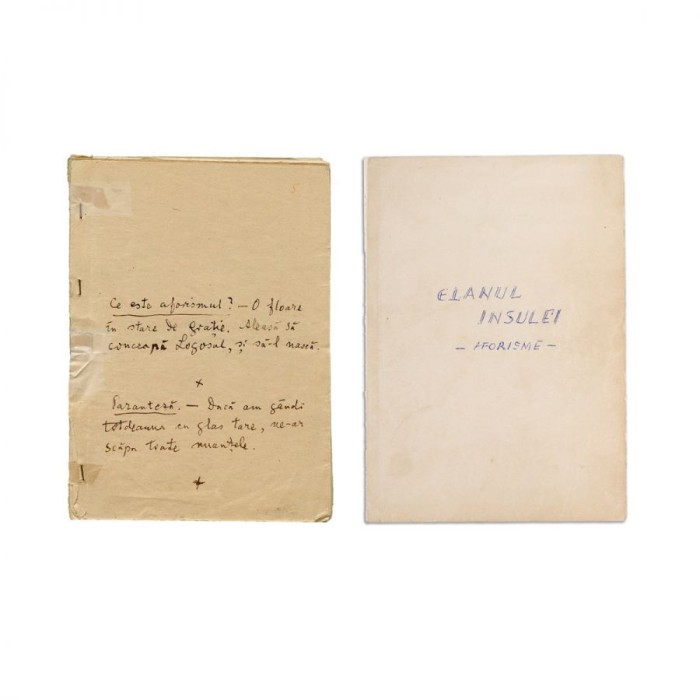 Ce este aforismul? — O floare
în stare de grație. Aleasă să
conceapă Logosul, și să-l nască.
+
Paranteză. — Dacă am gândi
totdeauna cu glas tare, ne-ar
scăpa toate nuanțele.
+
ELANUL
INSULEI
— AFORISME —